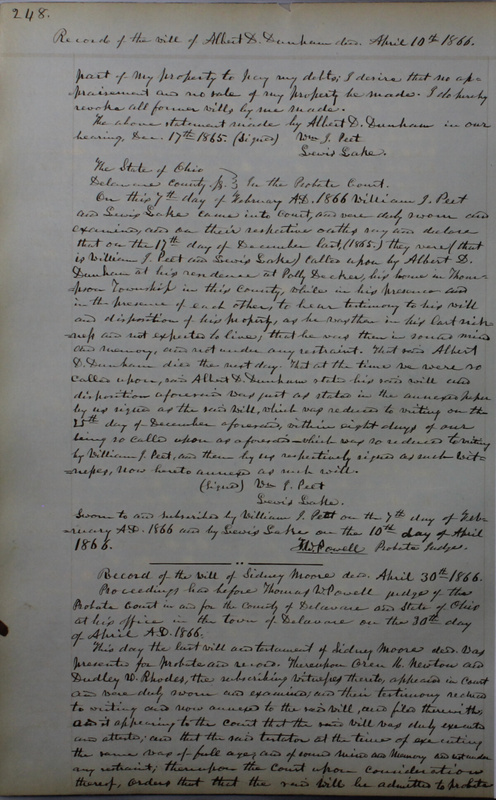 248.
Record of the will of Albert D. Dunham decd. April 10th 1866.
part of my property to pay my debts; I desire that no ap-
praisement and no sale of my property be made. I do hereby
revoke all former wills by me made.
The above statement made by Albert D. Dunham in our
hearing, Dec. 17th 1865. (Signed) Wm J. Peet
Lewis Lake.
The State of Ohio
Delaware County, ss. } In the Probate Court.
On this 7th day of February A.D. 1866 William J. Peet
and Lewis Lake came into Court, and were duly sworn and
examined, and on their respective oaths say and declare
that on the 17th day of December last, (1865.) they were (that
is William J. Peet and Lewis Lake) called upon by Albert D.
Dunham at his residence at Polly Decker, his home in Thom-
pson Township in this County, while in his presence and
in the presence of each other, to bear testimony to his will
and disposition of his property, as he was then in his last sick-
ness and not expected to live; that he was then in sound mind
and memory, and not under any restraint. That said Albert
D. Dunham died the next day. That at the time we were so
called upon, said Albert D. Dunham stated his said will and
disposition aforesaid was just as stated in the annexed paper
by us signed as the said will, which was reduced to writing on the
25th day of December aforesaid, within eight days of our
being so called upon as aforesaid—which was so reduced to writing
by William J. Peet, and then by us respectively signed as such wit-
nesses, now hereto annexed as such will.
(Signed) Wm J. Peet
Lewis Lake.
Sworn to and subscribed by William J. Peet on the 7th day of Feb-
ruary A.D. 1866 and by Lewis Lake on the 10th day of April
1866. T.W. Powell Probate Judge.
Record of the will of Sidney Moore decd. April 30th 1866.
Proceedings had before Thomas W. Powell judge of the
Probate Court in and for the County of Delaware and State of Ohio
at his office in the town of Delaware on the 30th day
of April A.D. 1866.
This day the last will and testament of Sidney Moore decd. was
presented for Probate and record. Thereupon Oren H. Newton and
Dudley W. Rhodes, the subscribing witnesses thereto, appeared in Court
and were duly sworn and examined, and their testimony reduced
to writing and now annexed to the said will, and filed therewith,
and it appearing to the Court that the said will was duly executed
and attested; and that the said testator at the time of executing
the same was of full age, and of sound mind and memory and not under
any restraint; thereupon the Court upon consideration
thereof, orders that that the said will be admitted to probate